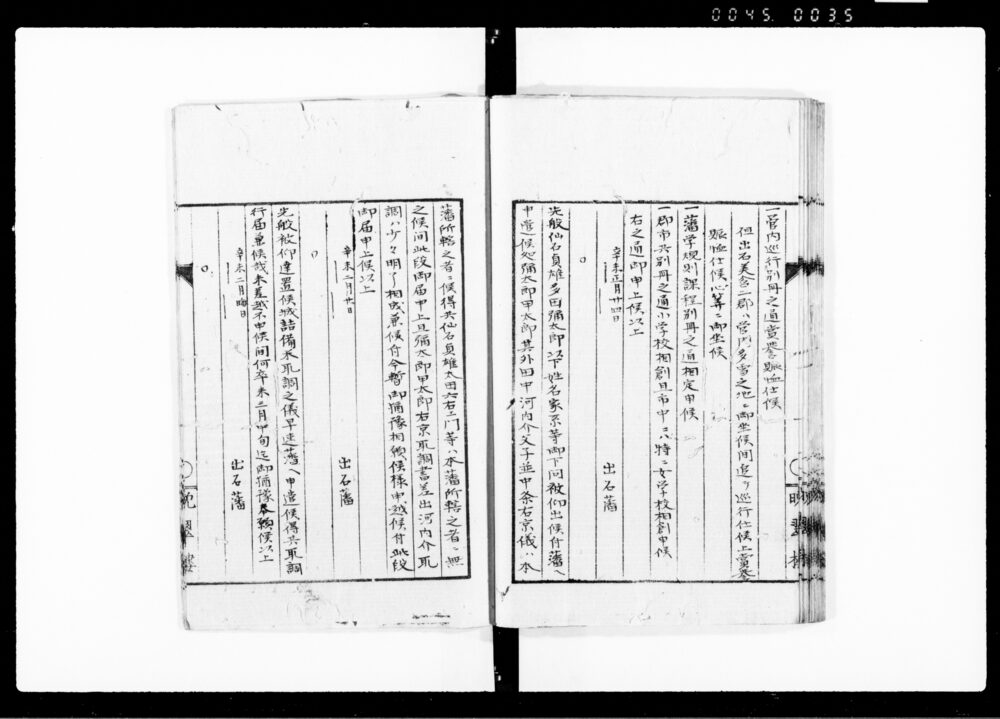 0045 0035
一管内巡行別冊之通賞誉賑恤仕候
但出石美含二郡ハ管内多雪之地ニ御坐候間追テ巡行仕候上賞誉
賑恤仕候心算ニ御坐候
一藩学規則課程別冊之通相定申候
一郡市共別冊之通小学校相創且市中ニハ特ニ女学校相創申候
右之通御申上候以上
辛未正月廿四日
出石藩
先般仙石貞雄多田彌太郎以下姓名家系等御下問被仰出候付藩ヘ
申遣候処彌太郎甲太郎其外田中河内介父子並中条右京儀ハ本
藩所轄之者ニ候得共仙石貞雄太田六右エ門等ハ本藩所轄之者ニ無
之候間此段御届申上且彌太郎甲太郎右京取調書差出河内介取
調ハ少々明了相成兼候付今暫御猶豫相願候様申越候付此段
御届申上候以上
辛未二月廿日
出石藩
先般被仰達置候城詰備米取調之儀早速藩ヘ申遣候得共取調
行届兼候哉未差越不申候間何卒来三月中旬迄御猶豫奉願候以上
辛未二月晦日
出石藩
晩翠楼